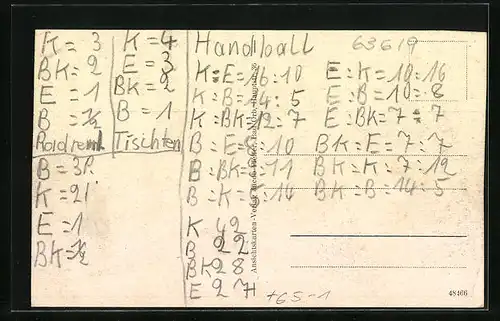 K = 3
BK = 2
E = 1
B = ½
K = 4
E = 3
BK = 2
B = 1
Tischten
B = 3
K = 21
E = 1
BK = ½
Handball
K = E = 16 : 10
K = B = 14 : 5
K = BK = 12 : 7
B = E = 8 : 10
B = BK = 11
B = K = 5 : 14
E = K = 10 : 16
E = B = 10 = 8
E = BK = 7 = 7
BK = E = 7 : 7
BK = K = 7 : 12
BK = B = 14 : 5
K 42
B 22
BK 28
E 27 H
63619
Ansichtskarten-Verlag
+65-1
48466